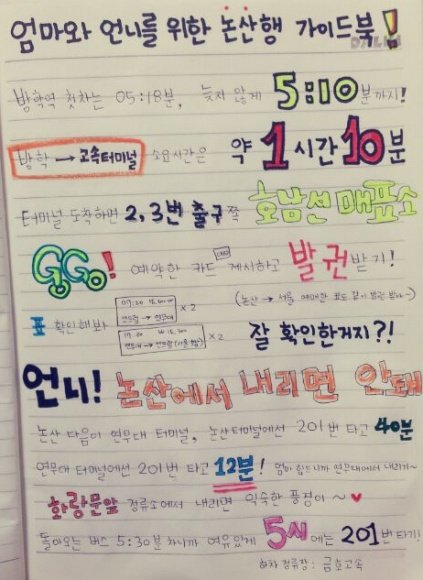 엄마와 언니를 위한 논산행 가이드북!
방학역 첫차는 05:18분, 늦지 않게 5:10분까지!
방학 → 고속터미널 소요시간은 약 1시간 10분
터미널 도착하면 2,3번 출구쪽 호남선 매표소
GoGo! 예약한 카드 제시하고 발권받기!
(논산 → 서울 예매한 표도 같이 발권 받아~)
표 확인해봐 x 2
x 2 잘 확인한거지?!
언니! 논산에서 내리면 안돼
논산 다음이 연무대 터미널, 논산터미널에서 201번 타고 40분
연무대 터미널에선 201번 타고 12분! 엄마 힘드니까 연무대에서 내리기~
화랑문앞 정류소에서 내리면 익숙한 풍경이~♥
돌아오는 버스 5:30분 차니까 여유있게 5시에는 201번 타기!
하차 정류장: 금호고속